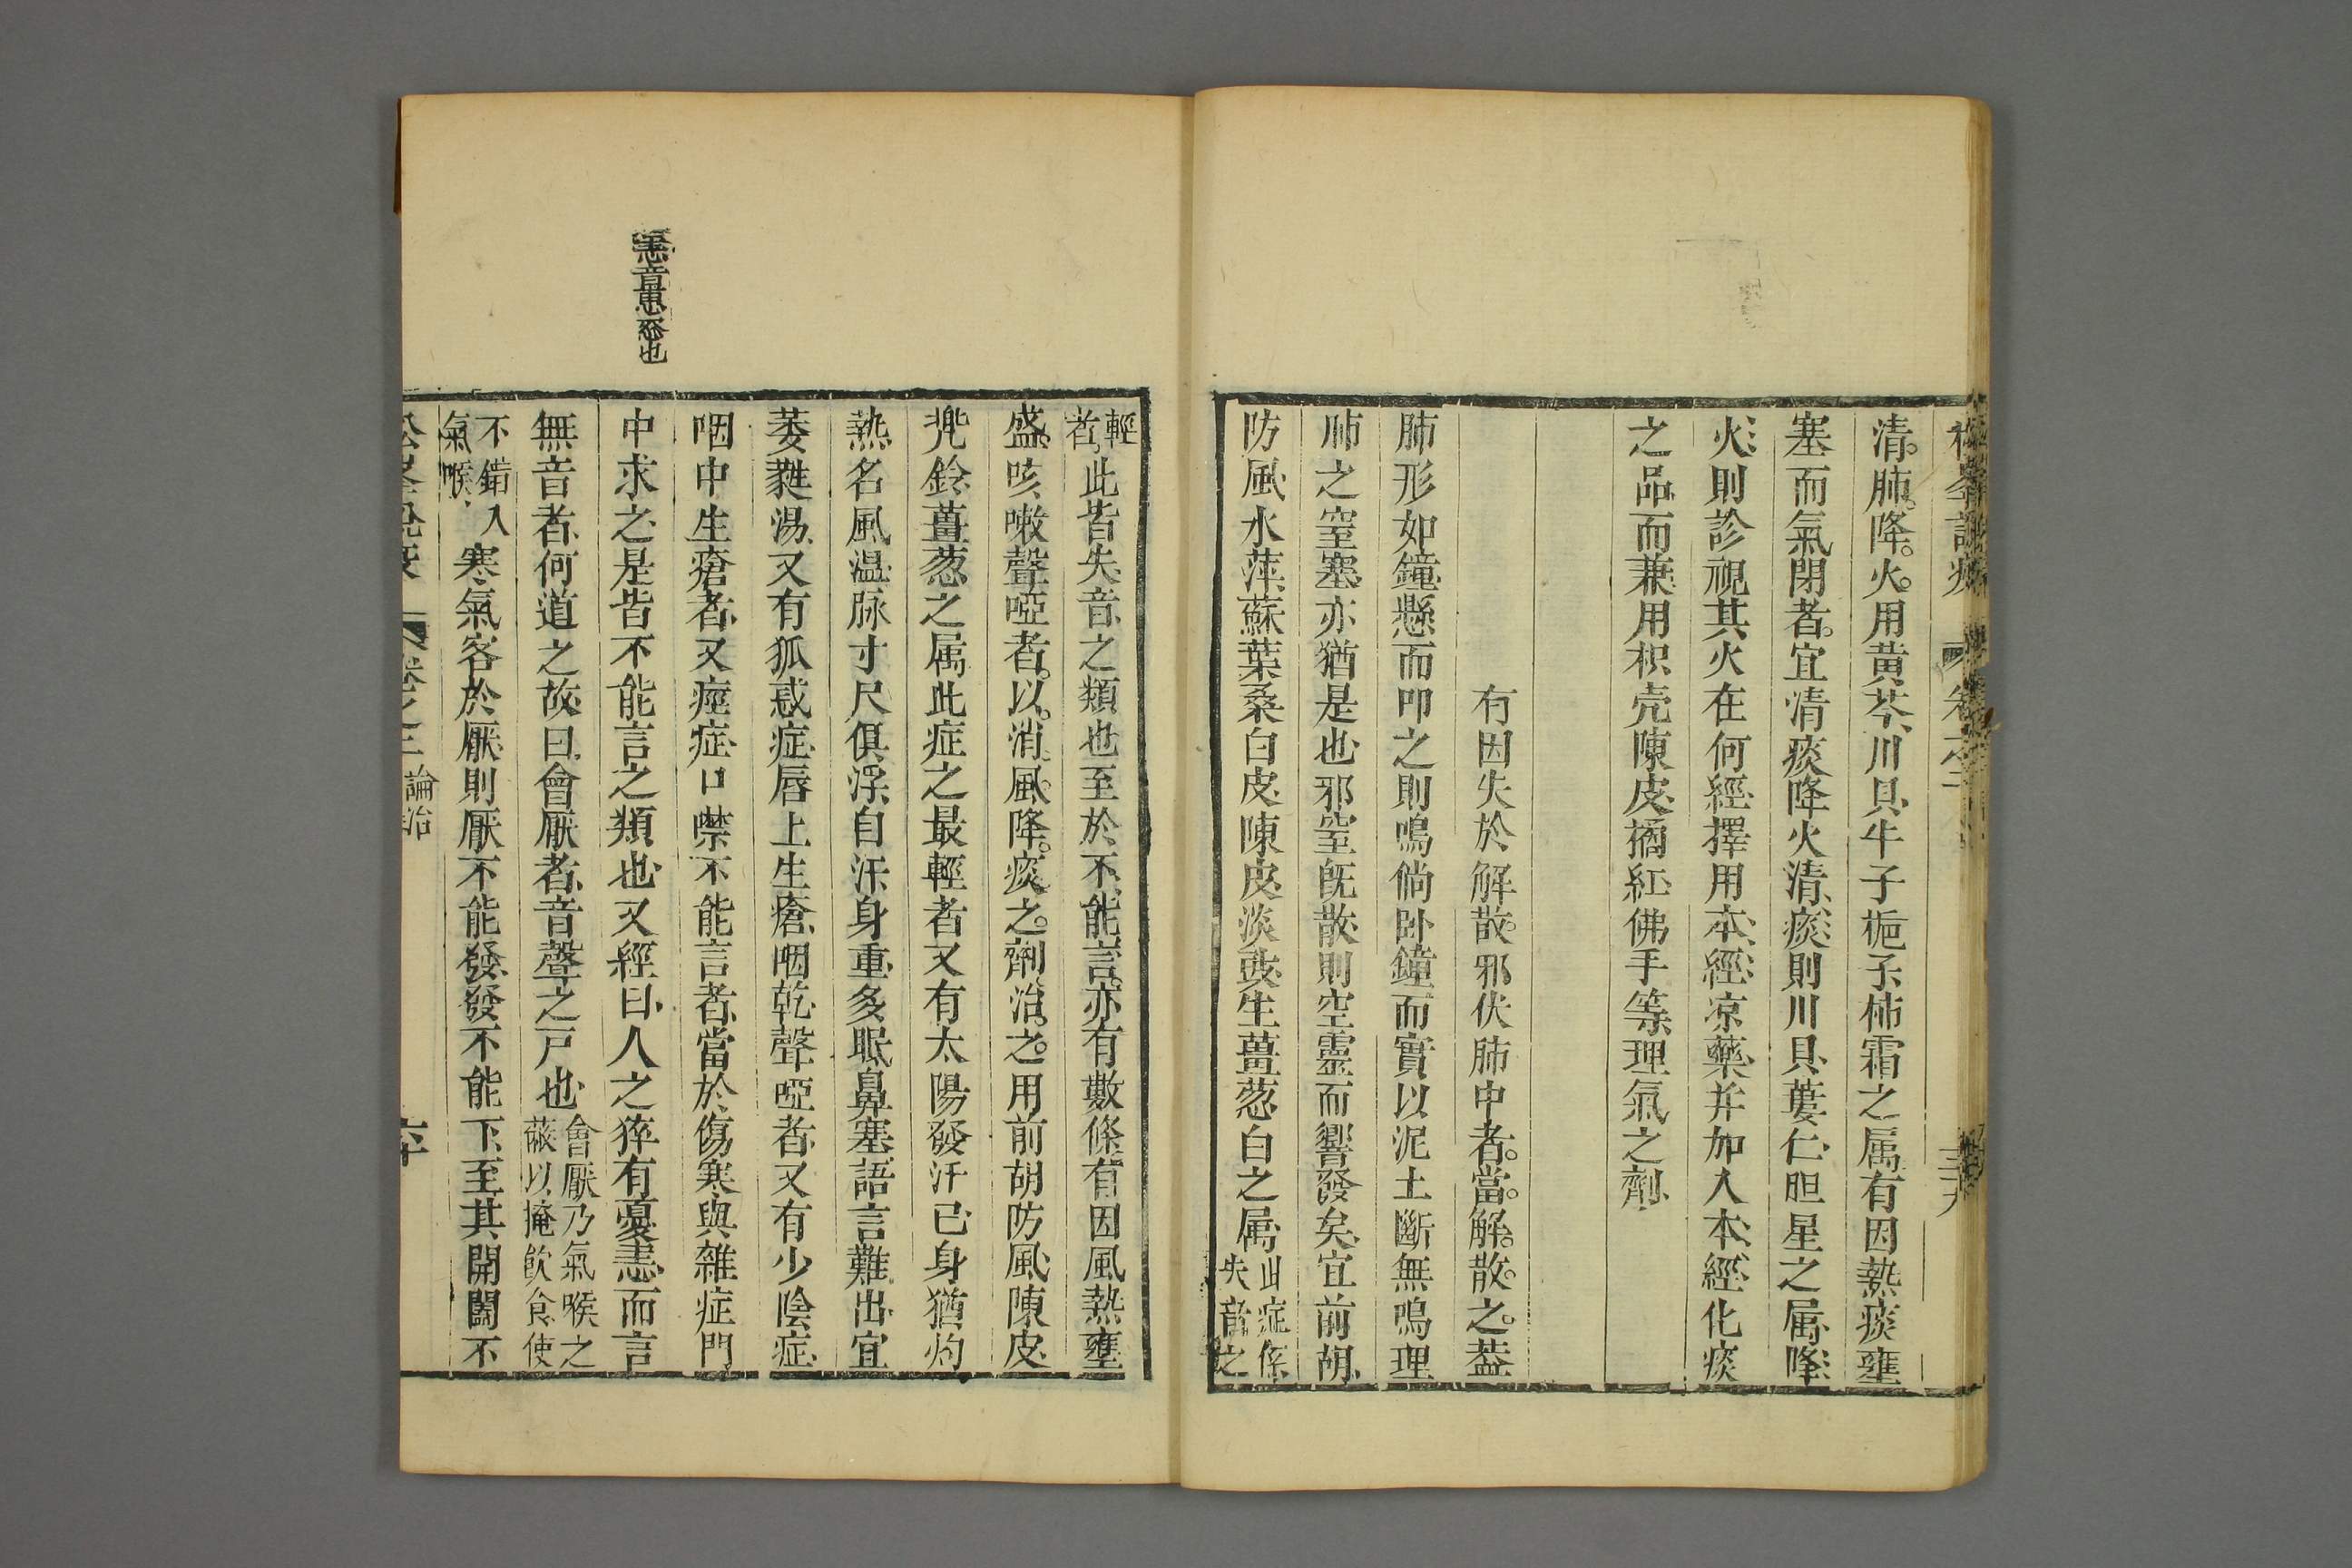 清肺降火用黄芩川貝牛子梔子柿霜之属有因熱痰壅
塞而氣閉者宜清痰降火清痰則川貝蔞仁胆星之属降
火則診視其火在何經擇用本經凉藥并加入本經化痰
之品而兼用枳壳陳皮橘紅佛手等理氣之劑
有因失於解散邪伏肺中者當解散之葢
肺形如鐘懸而叩之則鳴倘卧鐘而實以泥土斷無鳴理
肺之窒塞亦猶是也邪窒既散則空靈而響發矣宜前胡
防風水萍蘇葉桑白皮陳皮淡豉生薑葱白之属此症係
失音之
輕
者此皆失音之類也至於不能言亦有數條有因風熱壅
盛咳嗽聲啞者以消風降痰之劑治之用前胡防風陳皮
兠鈴薑葱之属此症之最輕者又有太陽發汗已身猶灼
熱名風温脉寸尺俱浮自汗身重多眠鼻塞語言難出宜
萎蕤湯又有狐惑症唇上生瘡咽乾聲啞者又有少陰症
咽中生瘡者又痙症口噤不能言者當於傷寒與雜症門
惡音恚怒也
中求之是皆不能言之類也又經曰人之猝有憂恚而言
無音者何道之故曰會厭者音聲之戸也會厭乃氣喉之
蔽以掩飮食使
不錯入
氣喉寒氣客於厭則厭不能發發不能下至其開闔不
松峯說疫 卷之三 論治 六十